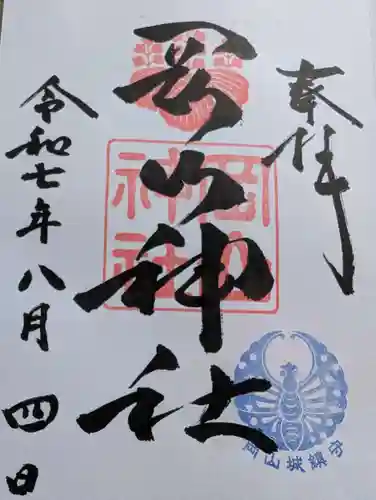 奉拝
岡山神社
岡山
神社
令和七年八月四日
岡山城鎮守